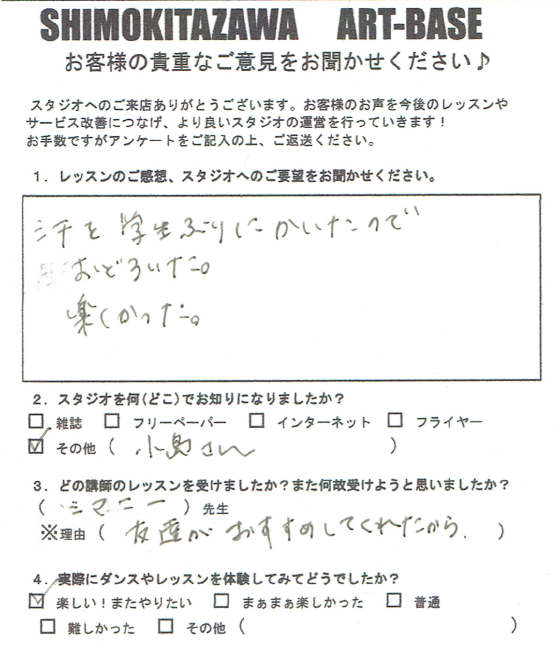 SHIMOKITAZAWA ART-BASE
お客様の貴重なご意見をお聞かせください♪
スタジオへのご来店ありがとうございます。お客様のお声を今後のレッスンや
サービス改善につなげ、より良いスタジオの運営を行っていきます！
お手数ですがアンケートをご記入の上、ご返送ください。
1．レッスンのご感想、スタジオへのご要望をお聞かせください。
汗を学生ぶりにかいたので
おどろいた。
楽しかった。
2．スタジオを何(どこ)でお知りになりましたか？
□ 雑誌 □ フリーペーパー □ インターネット □ フライヤー
☑ その他 （ 小島さん ）
3．どの講師のレッスンを受けましたか？また何故受けようと思いましたか？
（ シマニー ） 先生
※理由 （ 友達がおすすめしてくれたから. ）
4．実際にダンスやレッスンを体験してみてどうでしたか？
☑ 楽しい！またやりたい □ まぁまぁ楽しかった □ 普通
□ 難しかった □ その他 （ ）